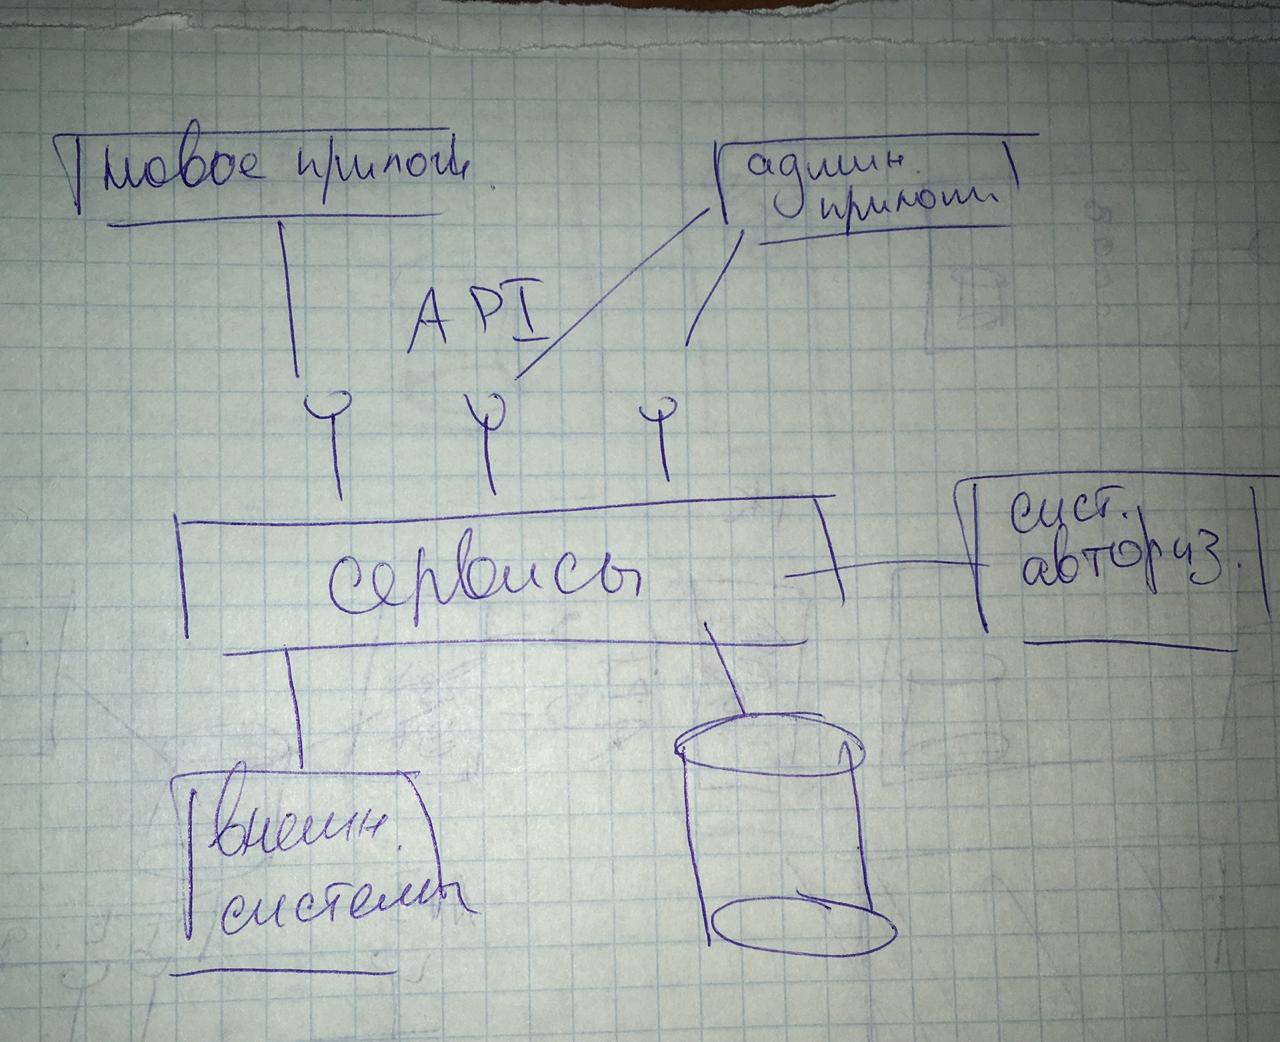 новое прилож.
админ.
прилож.
API
сервисы
сист.
авториз.
внешн.
системы